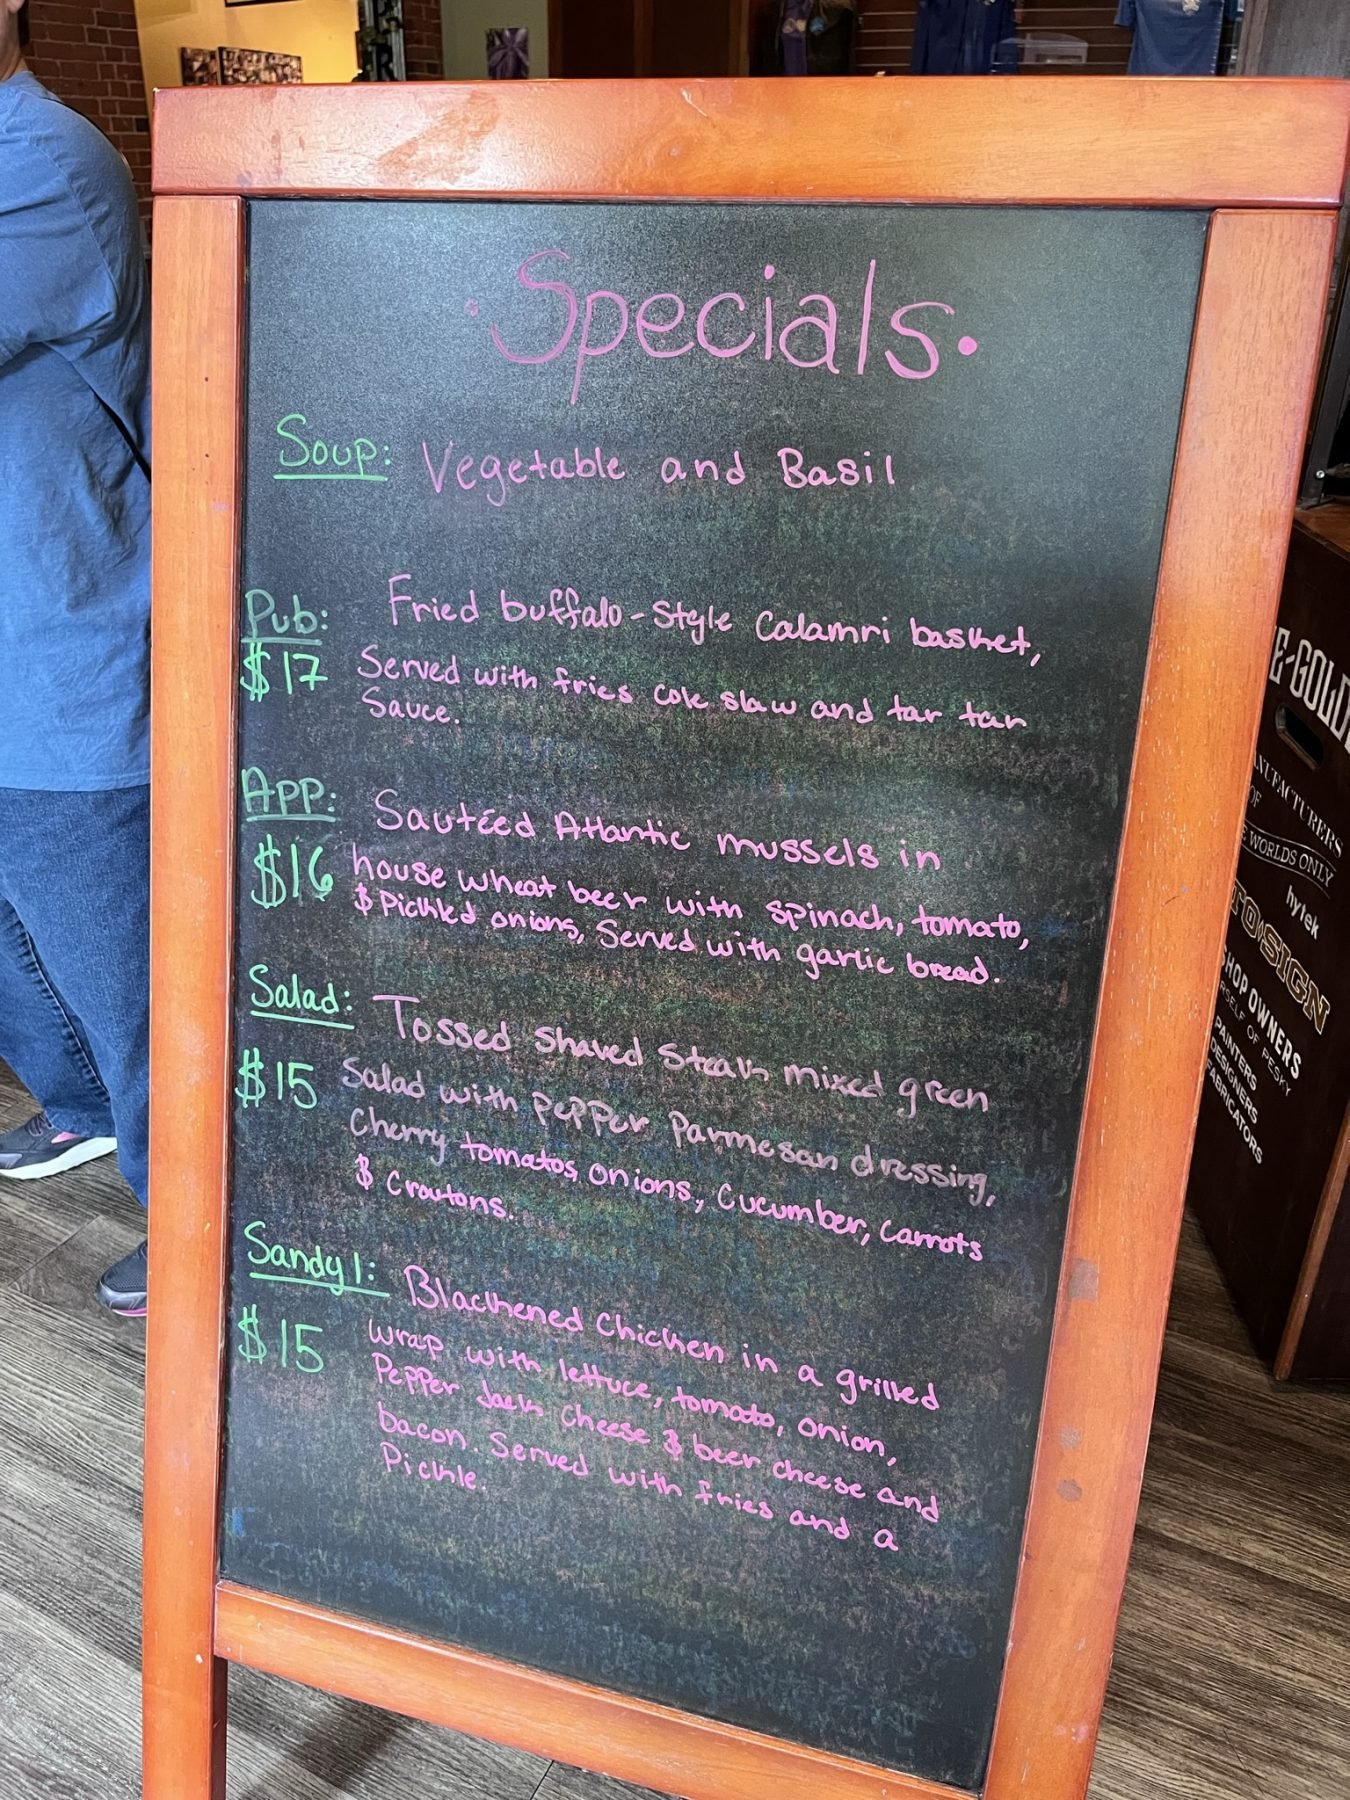 • Specials •
Soup: Vegetable and Basil
Pub: Fried buffalo-style Calamri basket,
$17 Served with fries cole slaw and tar tar
Sauce.
App: Sautéed Atlantic mussels in
$16 house wheat beer with spinach, tomato,
& Pickled onions, Served with garlic bread.
Salad: Tossed Shaved Steak mixed green
$15 Salad with pepper parmesan dressing,
Cherry tomatos, onions, Cucumber, carrots
& Croutons.
Sandy 1: Blackened Chicken in a grilled
$15 wrap with lettuce, tomato, onion,
Pepper Jack Cheese & beer cheese and
bacon. Served with fries and a
Pickle.
E-GOLD
OF
WORLDS ONLY
hytek
SIGN
SHOP OWNERS
OF PESKY
PAINTERS
DESIGNERS
FABRICATORS